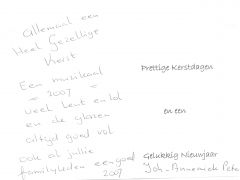 Allemaal een
Heel Gezellige
Kerst
Een muzikaal
" 2007 "
veel leut en lol
en de glazen
altyd goed vol
ook al jullie
familyleden een goed
2007
Prettige Kerstdagen
en een
Gelukkig Nieuwjaar
Joh. Annemiek Peter